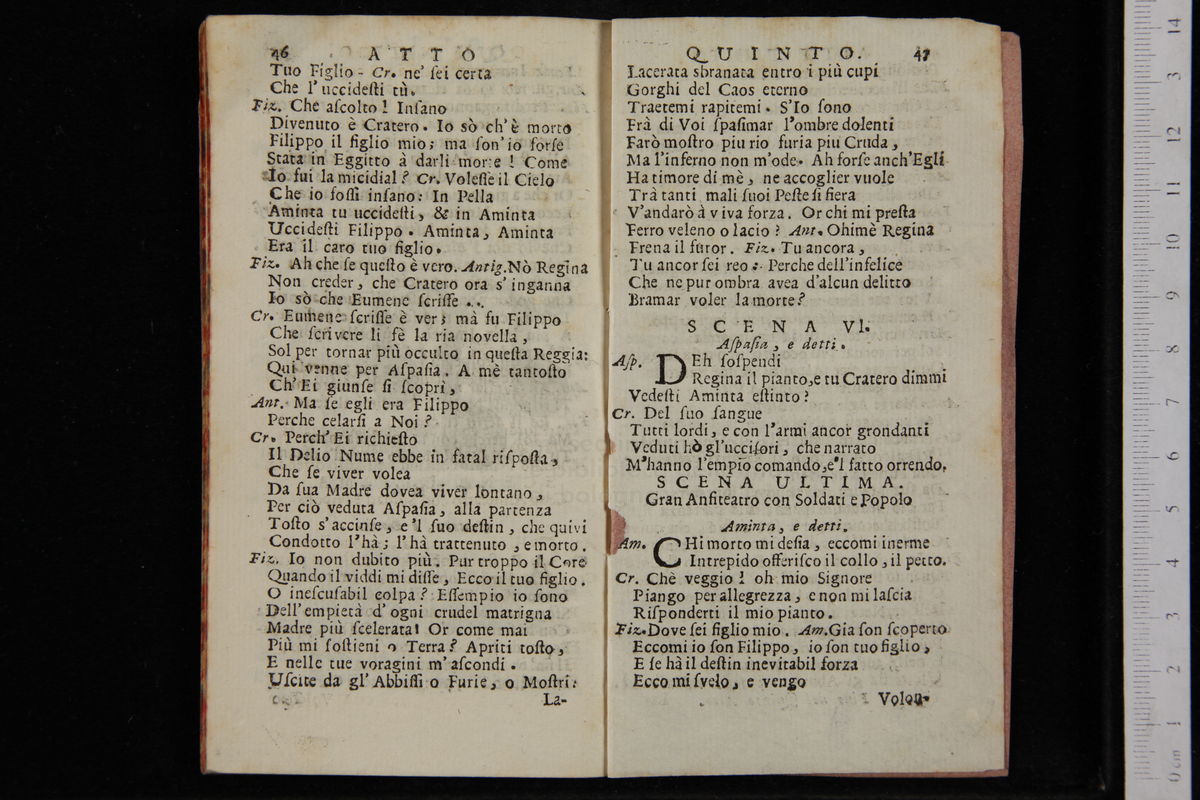 46 ATTO
Tuo Figlio - Cr. ne' ſei certa
Che l'uccideſti tù.
Fiz. Che aſcolto! Inſano
Divenuto è Cratero. Io sò ch'è morto
Filippo il figlio mio; ma ſon'io forſe
Stata in Eggitto à darli morte! Come
Io fui la micidial? Cr. Voleſſe il Cielo
Che io foſſi inſano: In Pella
Aminta tu uccideſti, & in Aminta
Uccideſti Filippo. Aminta, Aminta
Era il caro tuo figlio.
Fiz. Ah che ſe queſto è vero. Antig. Nò Regina
Non creder, che Cratero ora s'inganna
Io sò che Eumene ſcriſſe ...
Cr. Eumene ſcriſſe è ver; mà fu Filippo
Che ſcrivere li fè la ria novella,
Sol per tornar più occulto in queſta Reggia:
Qui venne per Aſpaſia. A mè tantoſto
Ch'Ei giunſe ſi ſcoprì,
Ant. Ma ſe egli era Filippo
Perche celarſi a Noi?
Cr. Perch'Ei richieſto
Il Delio Nume ebbe in fatal riſpoſta,
Che ſe viver volea
Da ſua Madre dovea viver lontano,
Per ciò veduta Aſpaſia, alla partenza
Toſto s'accinſe, e'l ſuo deſtin, che quivi
Condotto l'hà; l'hà trattenuto, e morto.
Fiz. Io non dubito più. Pur troppo il Core
Quando il viddi mi diſſe, Ecco il tuo figlio.
O ineſcuſabil colpa? Eſſempio io ſono
Dell'empietà d'ogni crudel matrigna
Madre più ſcelerata! Or come mai
Più mi ſoſtieni o Terra? Apriti toſto,
E nelle tue voragini m'aſcondi.
Uſcite da gl'Abbiſſi o Furie, o Moſtri:
La-
QUINTO. 47
Lacerata sbranata entro i più cupi
Gorghi del Caos eterno
Traetemi rapitemi. S'Io ſono
Frà di Voi ſpaſimar l'ombre dolenti
Farò moſtro piu rio furia piu Cruda,
Ma l'inferno non m'ode. Ah forſe anch'Egli
Ha timore di mè, ne accoglier vuole
Trà tanti mali ſuoi Peſte ſi fiera
V'andarò à viva forza. Or chi mi preſta
Ferro veleno o lacio? Ant. Ohimè Regina
Frena il furor. Fiz. Tu ancora,
Tu ancor ſei reo: Perche dell'infelice
Che ne pur ombra avea d'alcun delitto
Bramar voler la morte?
SCENA VI.
Aſpaſia, e detti.
Aſp. DEh ſoſpendi
Regina il pianto, e tu Cratero dimmi
Vedeſti Aminta eſtinto?
Cr. Del ſuo ſangue
Tutti lordi, e con l'armi ancor grondanti
Veduti hò gl'ucciſori, che narrato
M'hanno l'empio comando, e'l fatto orrendo.
SCENA ULTIMA.
Gran Anfiteatro con Soldati e Popolo
Aminta, e detti.
Am. CHi morto mi deſia, eccomi inerme
Intrepido offeriſco il collo, il petto.
Cr. Chè veggio! oh mio Signore
Piango per allegrezza, e non mi laſcia
Riſponderti il mio pianto.
Fiz. Dove ſei figlio mio. Am. Gia ſon ſcoperto
Eccomi io ſon Filippo, io ſon tuo figlio,
E ſe hà il deſtin inevitabil forza
Ecco mi ſvelo, e vengo
Volon-
14
13
12
11
10
9
8
7
6
5
4
3
2
1
0 cm